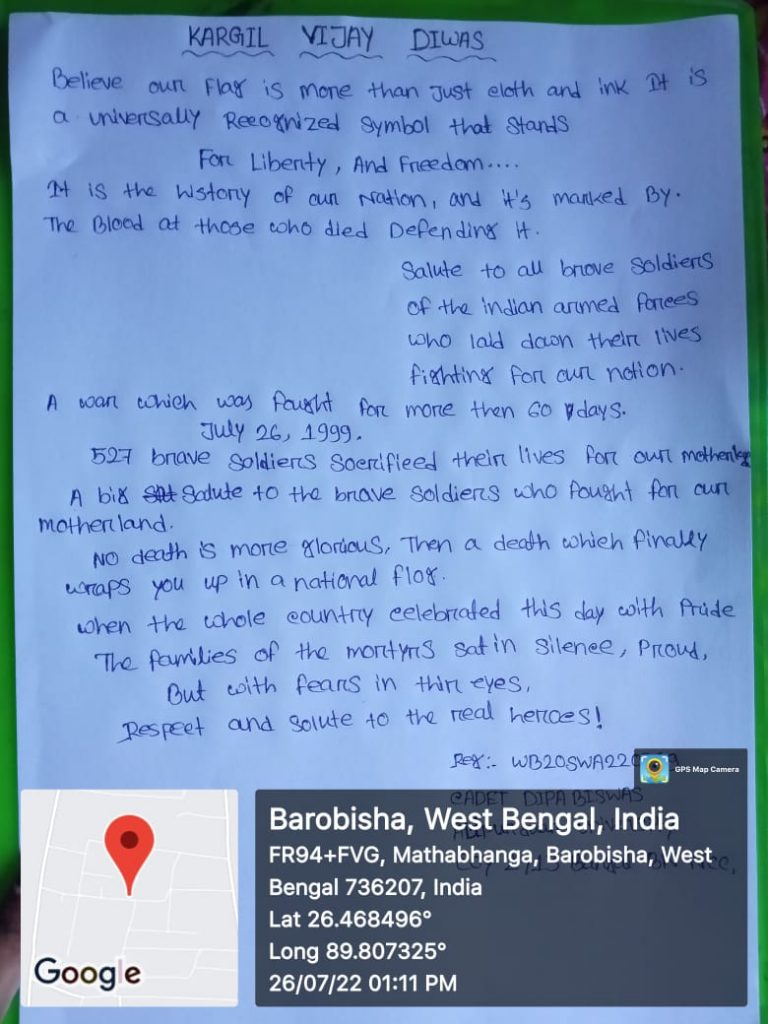 KARGIL VIJAY DIWAS
Believe our Flag is more than Just cloth and ink It is
a universally Recognized Symbol that stands
For Liberty, And Freedom....
It is the history of our Nation, and it's marked By.
The Blood at those who died Defending It.
Salute to all brave Soldiers
of the indian armed forces
who laid down their lives
fighting for our nation.
A war which was fought for more then 60 days.
July 26, 1999.
527 brave Soldiers Sacrifieed their lives for our motherland
A big Salute to the brave Soldiers who fought for our
motherland.
NO death is more glorious, Then a death which finally
wraps you up in a national flag.
when the whole country celebrated this day with Pride
The families of the martyrs sat in Silence, Proud,
But with fears in thir eyes,
Respect and Salute to the real heroes!
Reg:- WB20SWA220
GPS Map Camera
CADET DIPA BISWAS
Barobisha, West Bengal, India
FR94+FVG, Mathabhanga, Barobisha, West
Bengal 736207, India
Lat 26.468496°
Long 89.807325°
26/07/22 01:11 PM
Google